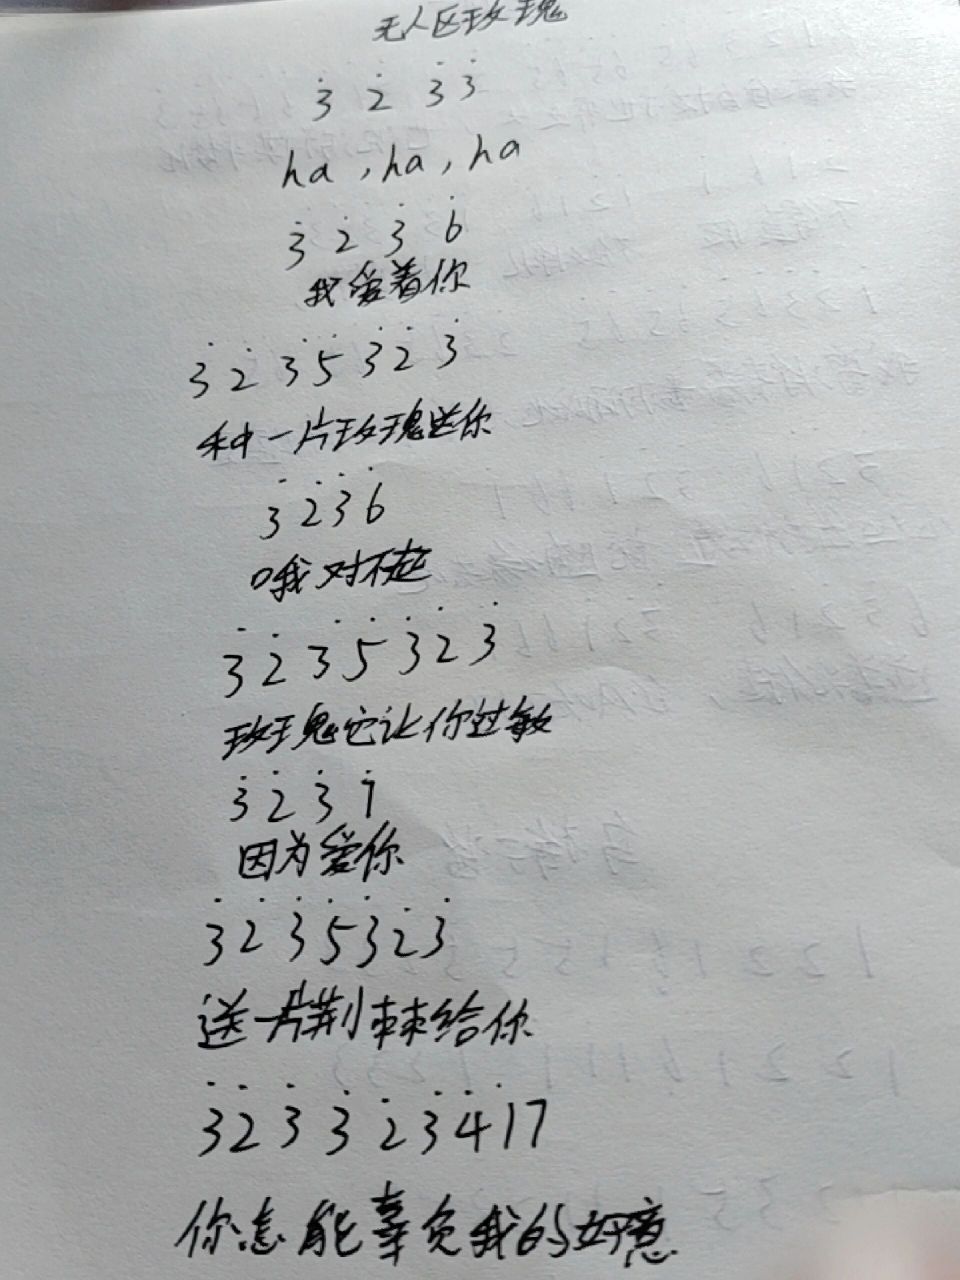 无人区玫瑰
3̇ 2̇ 3̇ 3̇
ha , ha , ha
3̇ 2̇ 3̇ 6̇
我爱着你
3̇ 2̇ 3̇ 5̇ 3̇ 2̇ 3̇
种一片玫瑰送你
3̇ 2̇ 3̇ 6̇
哦对不起
3̇ 2̇ 3̇ 5̇ 3̇ 2̇ 3̇
玫瑰它让你过敏
3̇ 2̇ 3̇ 7̇
因为爱你
3̇ 2̇ 3̇ 5̇ 3̇ 2̇ 3̇
送一片荆棘给你
3̇ 2̇ 3̇ 3̇ 2̇ 3̇ 4̇ 1̇ 7
你怎能辜负我的好意